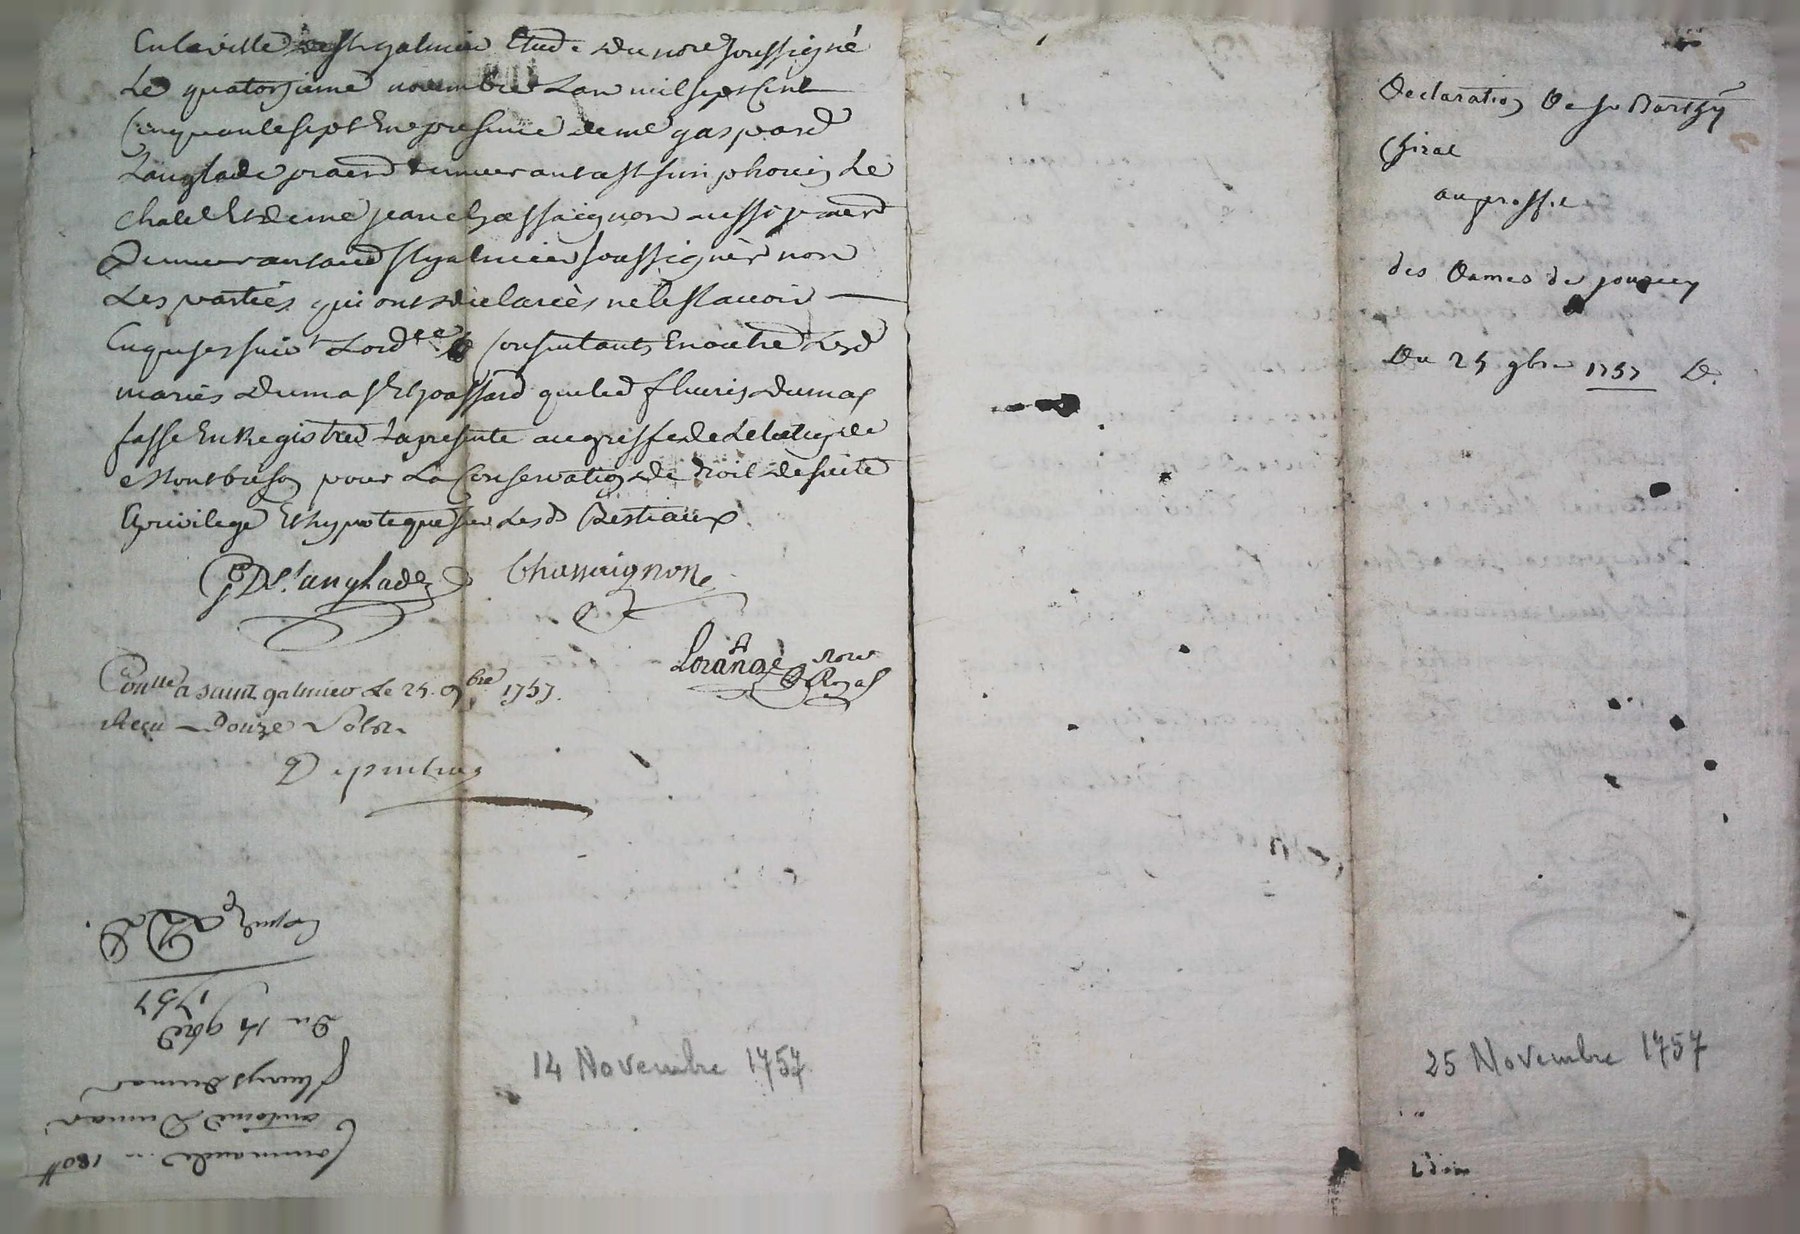 En la ville de St galmier Etude du nore soussigné
Le quatorzieme novembre Lan mil sept Cent
Cinquante sept En presence de me gaspard
Langlade praen demeurant a St simphorien Le
chatel Et de me jean chassaignon aussi praen
Demeurant aud St galmier soussignés non
Les parties qui ont declarées ne le scavoir
En qui se suit Consentants En outre Lesd
mariés dumas Et joassard que led fleuris dumas
fasse En Registrer La presente au greffe de Lelection de
Montbrison pour La Conservation de droit de suite
privilege Et hypoteque sur Lesd Bestiaux
Langlade Chassaignon
Lorange nore Royal
Conlle a saint galmier Le 25. 9bre 1757.
Recu - Douze sols
Commande 180#
antoine Dumas
fleurys dumas
Du 14 9bre
1757
14 Novembre 1757
Declaration De sr Barthy
Chirat
au proffit
des Dames de jourcey
Du 25 9bre 1757 D.
25 Novembre 1757